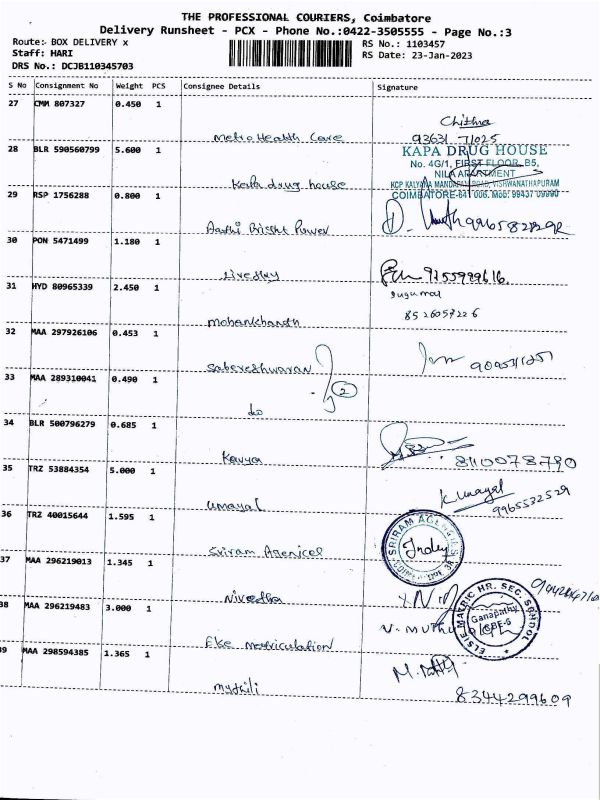 THE PROFESSIONAL COURIERS, Coimbatore
Delivery Runsheet - PCX - Phone No.:0422-3505555 - Page No.:3
Route: BOX DELIVERY x
RS No.: 1103457
Staff: HARI
RS Date: 23-Jan-2023
DRS No.: DCJB110345703
S No Consignment No Weight PCS Consignee Details Signature
27 CMM 807327 0.450 1
Chithra
Metro Health Care 93631 71025
28 BLR 590560799 5.600 1
KAPA DRUG HOUSE
No. 4G/1, FIRST FLOOR, B5,
NILA APARTMENT
Kapa drug house
KCP KALYANA MANDAPAM ROAD, VISHWANATHAPURAM
29 RSP 1756288 0.800 1
COIMBATORE-641 006. Mob: 99437 09990
Power
30 PON 5471499 1.180 1
31 HYD 80965339 2.450 1
Sugumar
8526057226
32 MAA 297926106 0.453 1
Sabareshwaran
33 MAA 289310041 0.490 1
2
do
34 BLR 500796279 0.685 1
Kavya 8110078790
35 TRZ 53884354 5.000 1
K. Umayal
Umayal 9965532529
36 TRZ 40015644 1.595 1
SRIRAM AGENCIES
Sriram Agencies
37 MAA 296219013 1.345 1
Nivedha
38 MAA 296219483 3.000 1
ELSIE MATRIC HR. SEC. SCHOOL
Ganapathy
CBE-6
matriculation
39 MAA 298594385 1.365 1
Mythili 8344299609